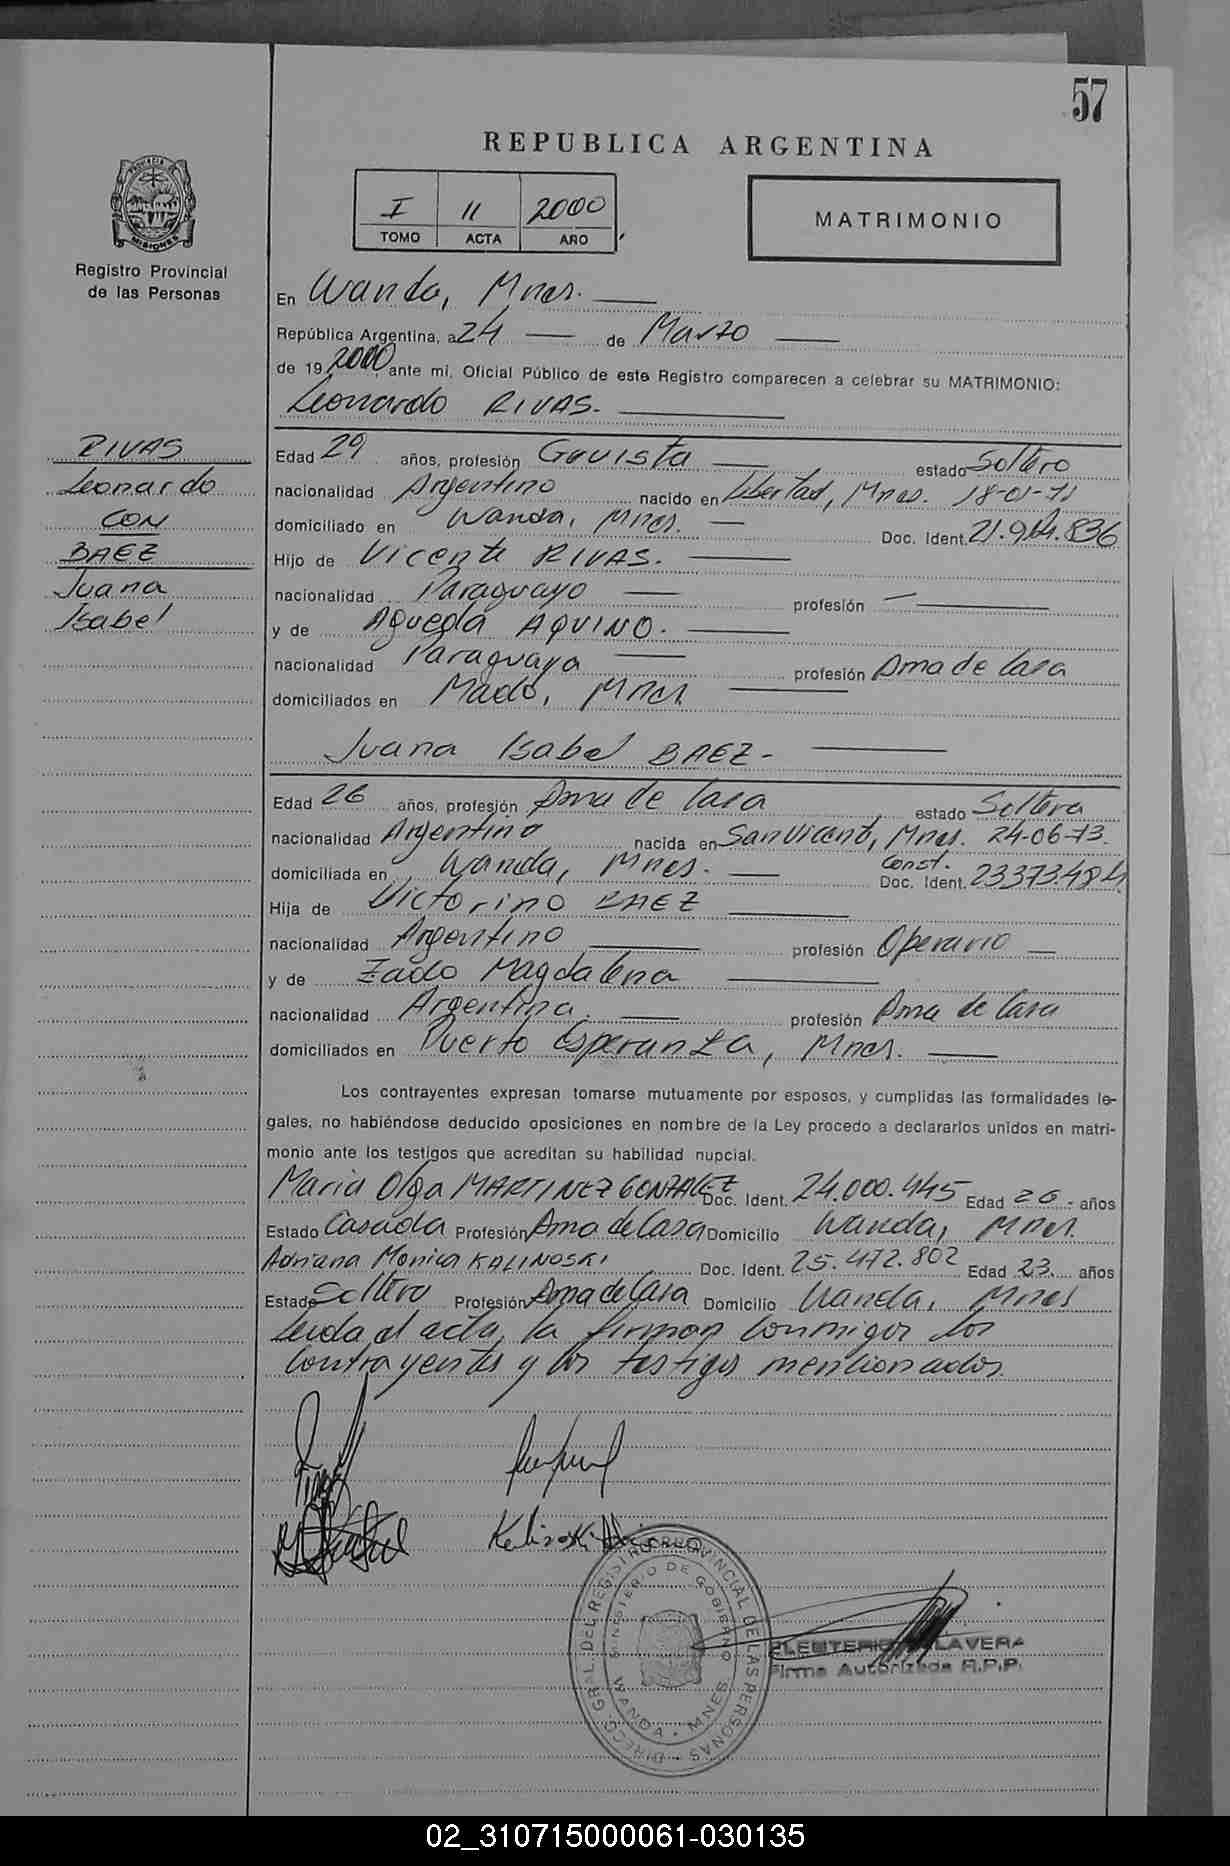 57
REPUBLICA ARGENTINA
I 11 2000
TOMO ACTA AÑO
MATRIMONIO
PROVINCIA DE MISIONES
Registro Provincial
de las Personas
En Wanda, Mnes.
República Argentina, a 24 de Marzo
de 19 2000 ante mi, Oficial Público de este Registro comparecen a celebrar su MATRIMONIO:
Leonardo RIVAS.
RIVAS
Leonardo
CON
BAEZ
Juana
Isabel
Edad 29 años, profesión estado Soltero
nacionalidad Argentino nacido en Libertad, Mnes. 18-01-71
domiciliado en Wanda, Mnes. Doc. Ident. 21.964.836
Hijo de Vicente RIVAS.
nacionalidad Paraguayo profesión —
y de Agueda AQUINO.
nacionalidad Paraguaya profesión Ama de Casa
domiciliados en Mado, Mnes
Juana Isabel BAEZ-
Edad 26 años, profesión Ama de Casa estado Soltera
nacionalidad Argentina nacida en San Vicente, Mnes. 24-06-73.
domiciliada en Wanda, Mnes. Const. Doc. Ident. 23373.484
Hija de Victorino BAEZ
nacionalidad Argentino profesión Operario
y de Zado Magdalena
nacionalidad Argentina. profesión Ama de Casa
domiciliados en Puerto Esperanza, Mnes.
Los contrayentes expresan tomarse mutuamente por esposos, y cumplidas las formalidades le-
gales, no habiéndose deducido oposiciones en nombre de la Ley procedo a declararlos unidos en matri-
monio ante los testigos que acreditan su habilidad nupcial.
Maria Olga MARTINEZ GONZALEZ Doc. Ident. 24.000.445 Edad 26- años
Estado Casada Profesión Ama de Casa Domicilio Wanda, Mnes.
Adriana Monica KALINOSKI Doc. Ident. 25.472.802 Edad 23 años
Estado Soltera Profesión Ama de Casa Domicilio Wanda, Mnes
Leida el acta, la firman conmigo los
contrayentes y los testigos mencionados.
DIRECC. GRAL. DEL REGISTRO PROVINCIAL DE LAS PERSONAS
MINISTERIO DE GOBIERNO
WANDA - MNES.
Firma Autorizada R.P.P.
02_310715000061-030135